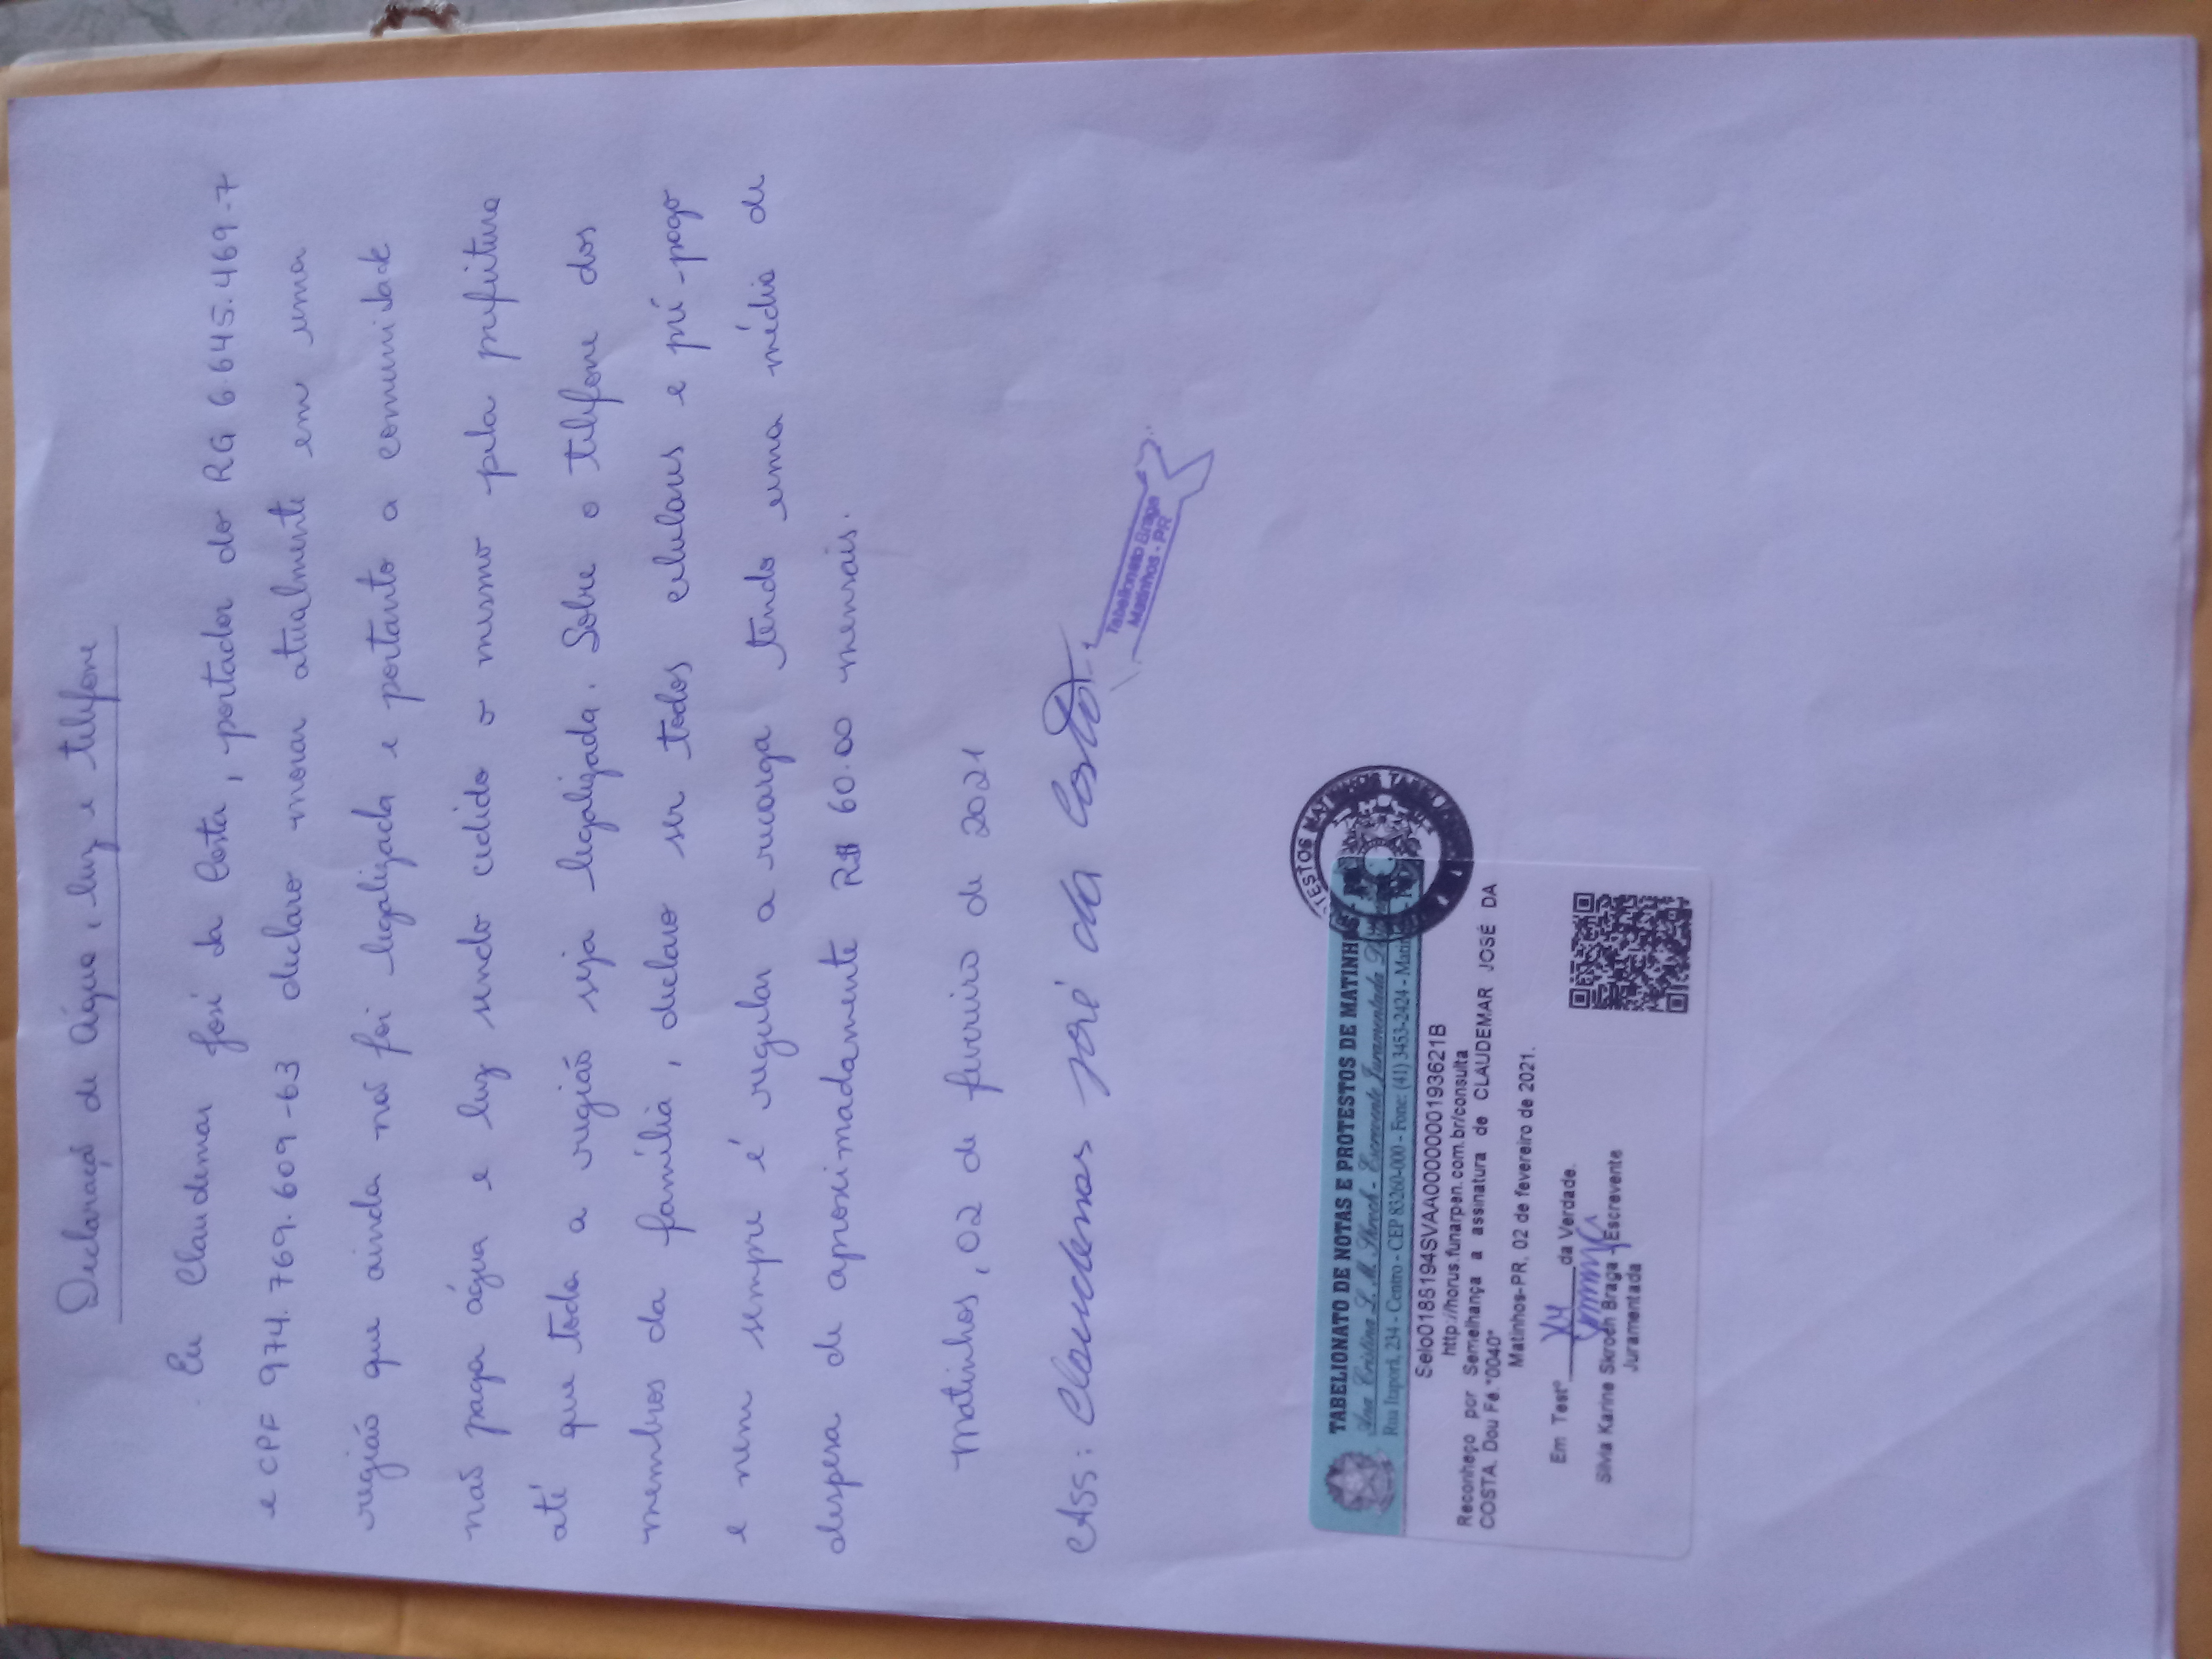 Declaração de água, luz e telefone
Eu Claudemar José da Costa, portador do RG 6.645.469-7
e CPF 974.769.609-63 declaro morar atualmente em uma
região que ainda não foi legalizada e portanto a comunidade
não paga água e luz sendo cedido o mesmo pela prefeitura
até que toda a região seja legalizada. Sobre o telefone dos
membros da família, declaro ser todos celulares e pré-pago
e nem sempre é regular a recarga tendo uma média de
despesa de aproximadamente R$ 60.00 mensais.
Matinhos, 02 de fevereiro de 2021
Ass: Claudemar José da Costa
Tabelionato Braga
Matinhos - PR
TABELIONATO DE NOTAS E PROTESTOS DE MATINHOS
Ana Cristina L. M. Skroch - Escrevente Juramentada
Rua Itaperi, 234 - Centro - CEP 83260-000 - Fone: (41) 3453-2424 -
Selo0188194SVAA00000000193621B
http://horus.funarpen.com.br/consulta
Reconheço por Semelhança a assinatura de CLAUDEMAR JOSÉ DA
COSTA. Dou Fé.*0040*
Matinhos-PR, 02 de fevereiro de 2021.
Em Testº da Verdade.
Silvia Karine Skroch Braga - Escrevente
Juramentada